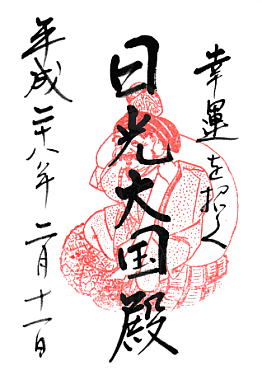 幸運を招く
日光大国殿
平成二十八年二月十一日